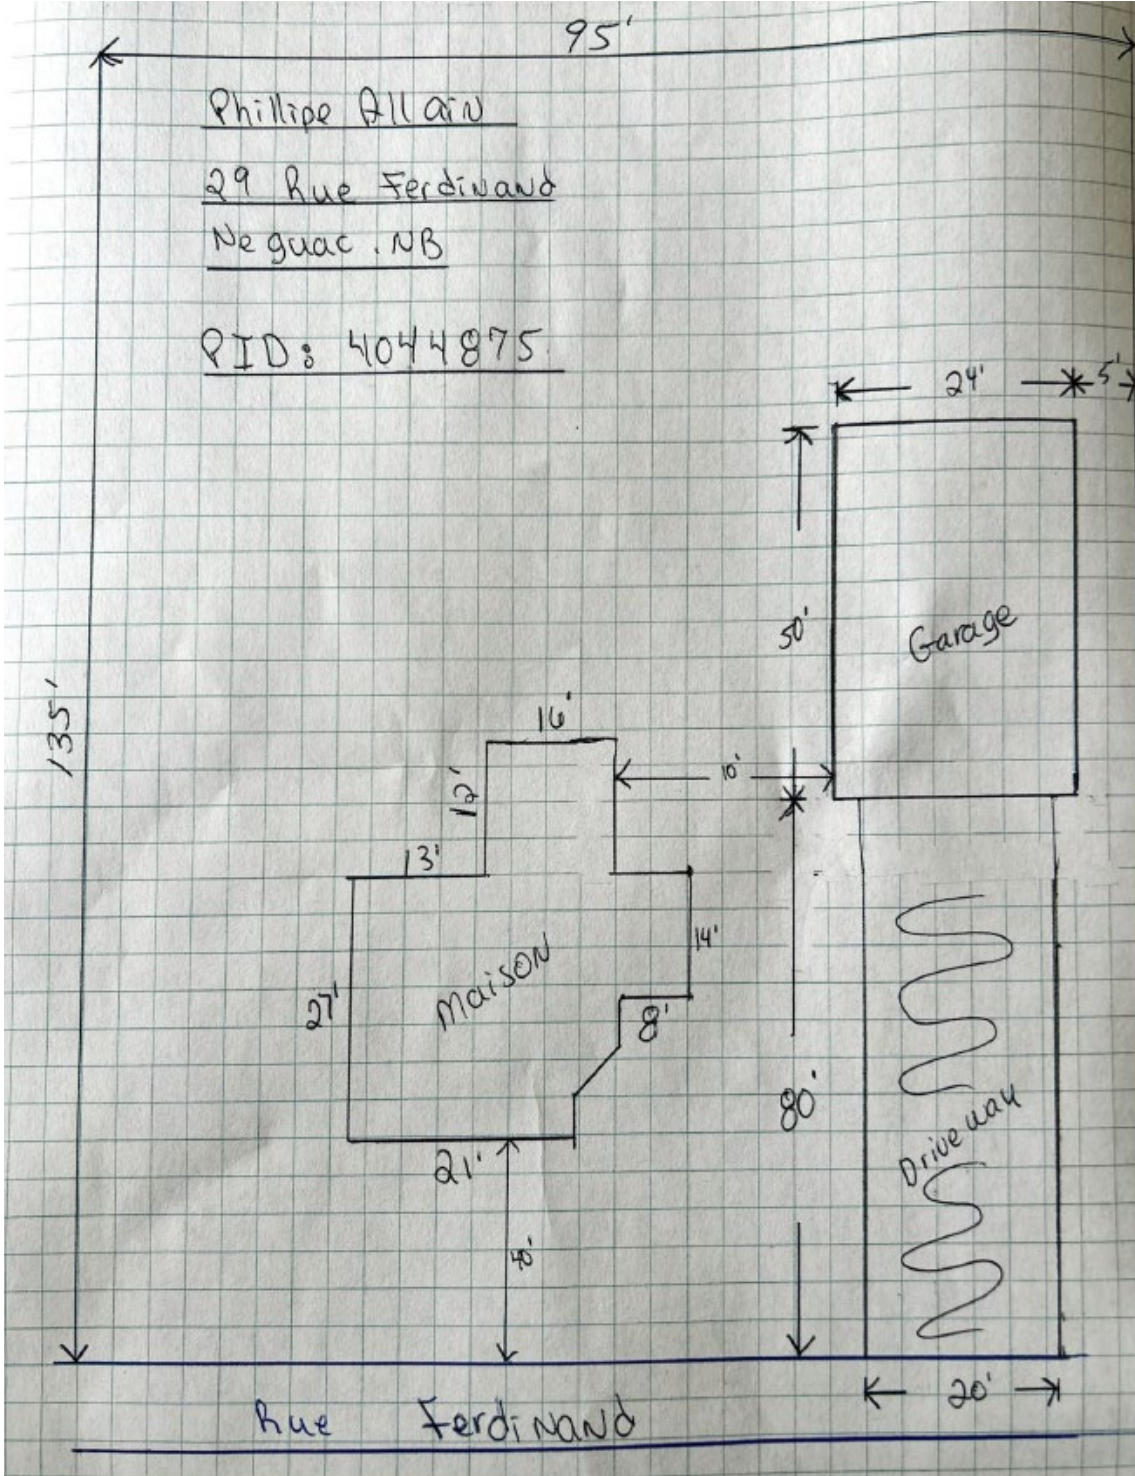 95'
Phillipe Allain
29 Rue Ferdinand
Neguac. NB
PID: 4044875.
24'
5'
50'
Garage
135'
16'
12'
10'
13'
14'
Maison
27'
8'
80'
Driveway
21'
40'
20'
Rue Ferdinand